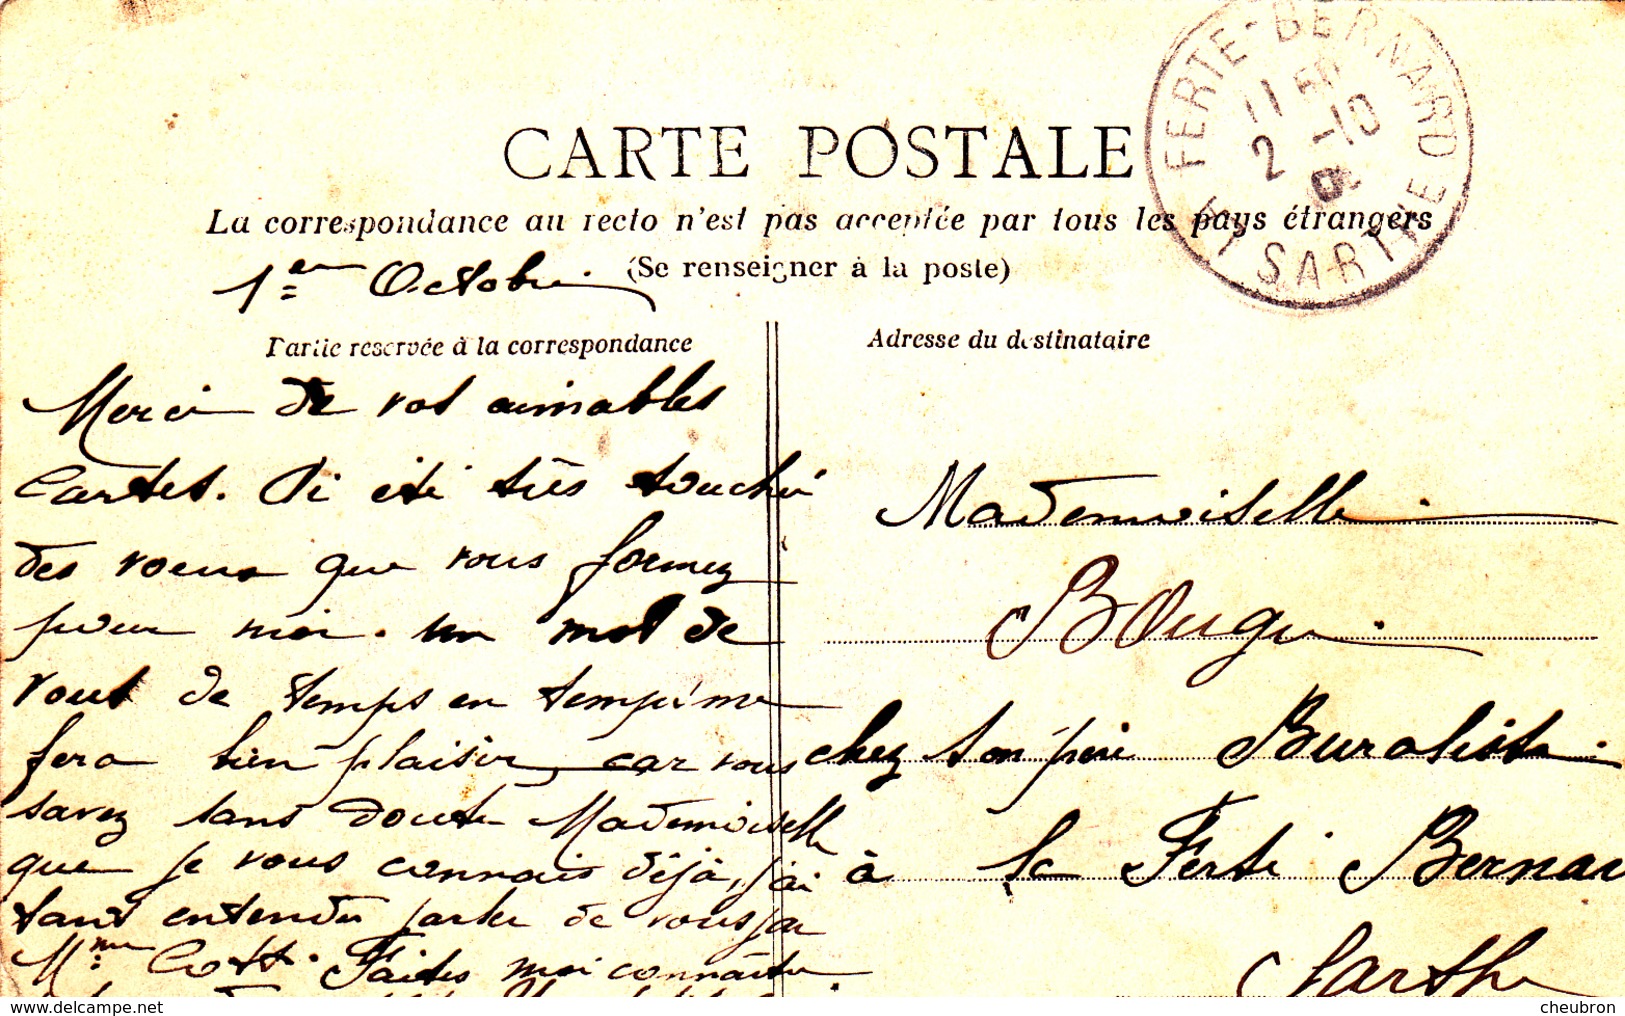 FERTE-BERNARD
11 50
2 -10
SARTHE
CARTE POSTALE
La correspondance au recto n'est pas acceptée par tous les pays étrangers
(Se renseigner à la poste)
1er Octobre
Partie réservée à la correspondance
Adresse du destinataire
Merci de vos aimables
Cartes. Ai été très touché
des voeux que vous formez
pour moi. un mot de
vous de temps en temps me
fera bien plaisir, car vous
savez sans doute Mademoiselle
que je vous connais déjà, j'ai
tant entendu parler de vous par
Mme Cott. Faites moi connaître
Mademoiselle
Bougu
chez son père Buraliste
à la Ferté Bernar
Sarthe
www.delcampe.net
cheubron